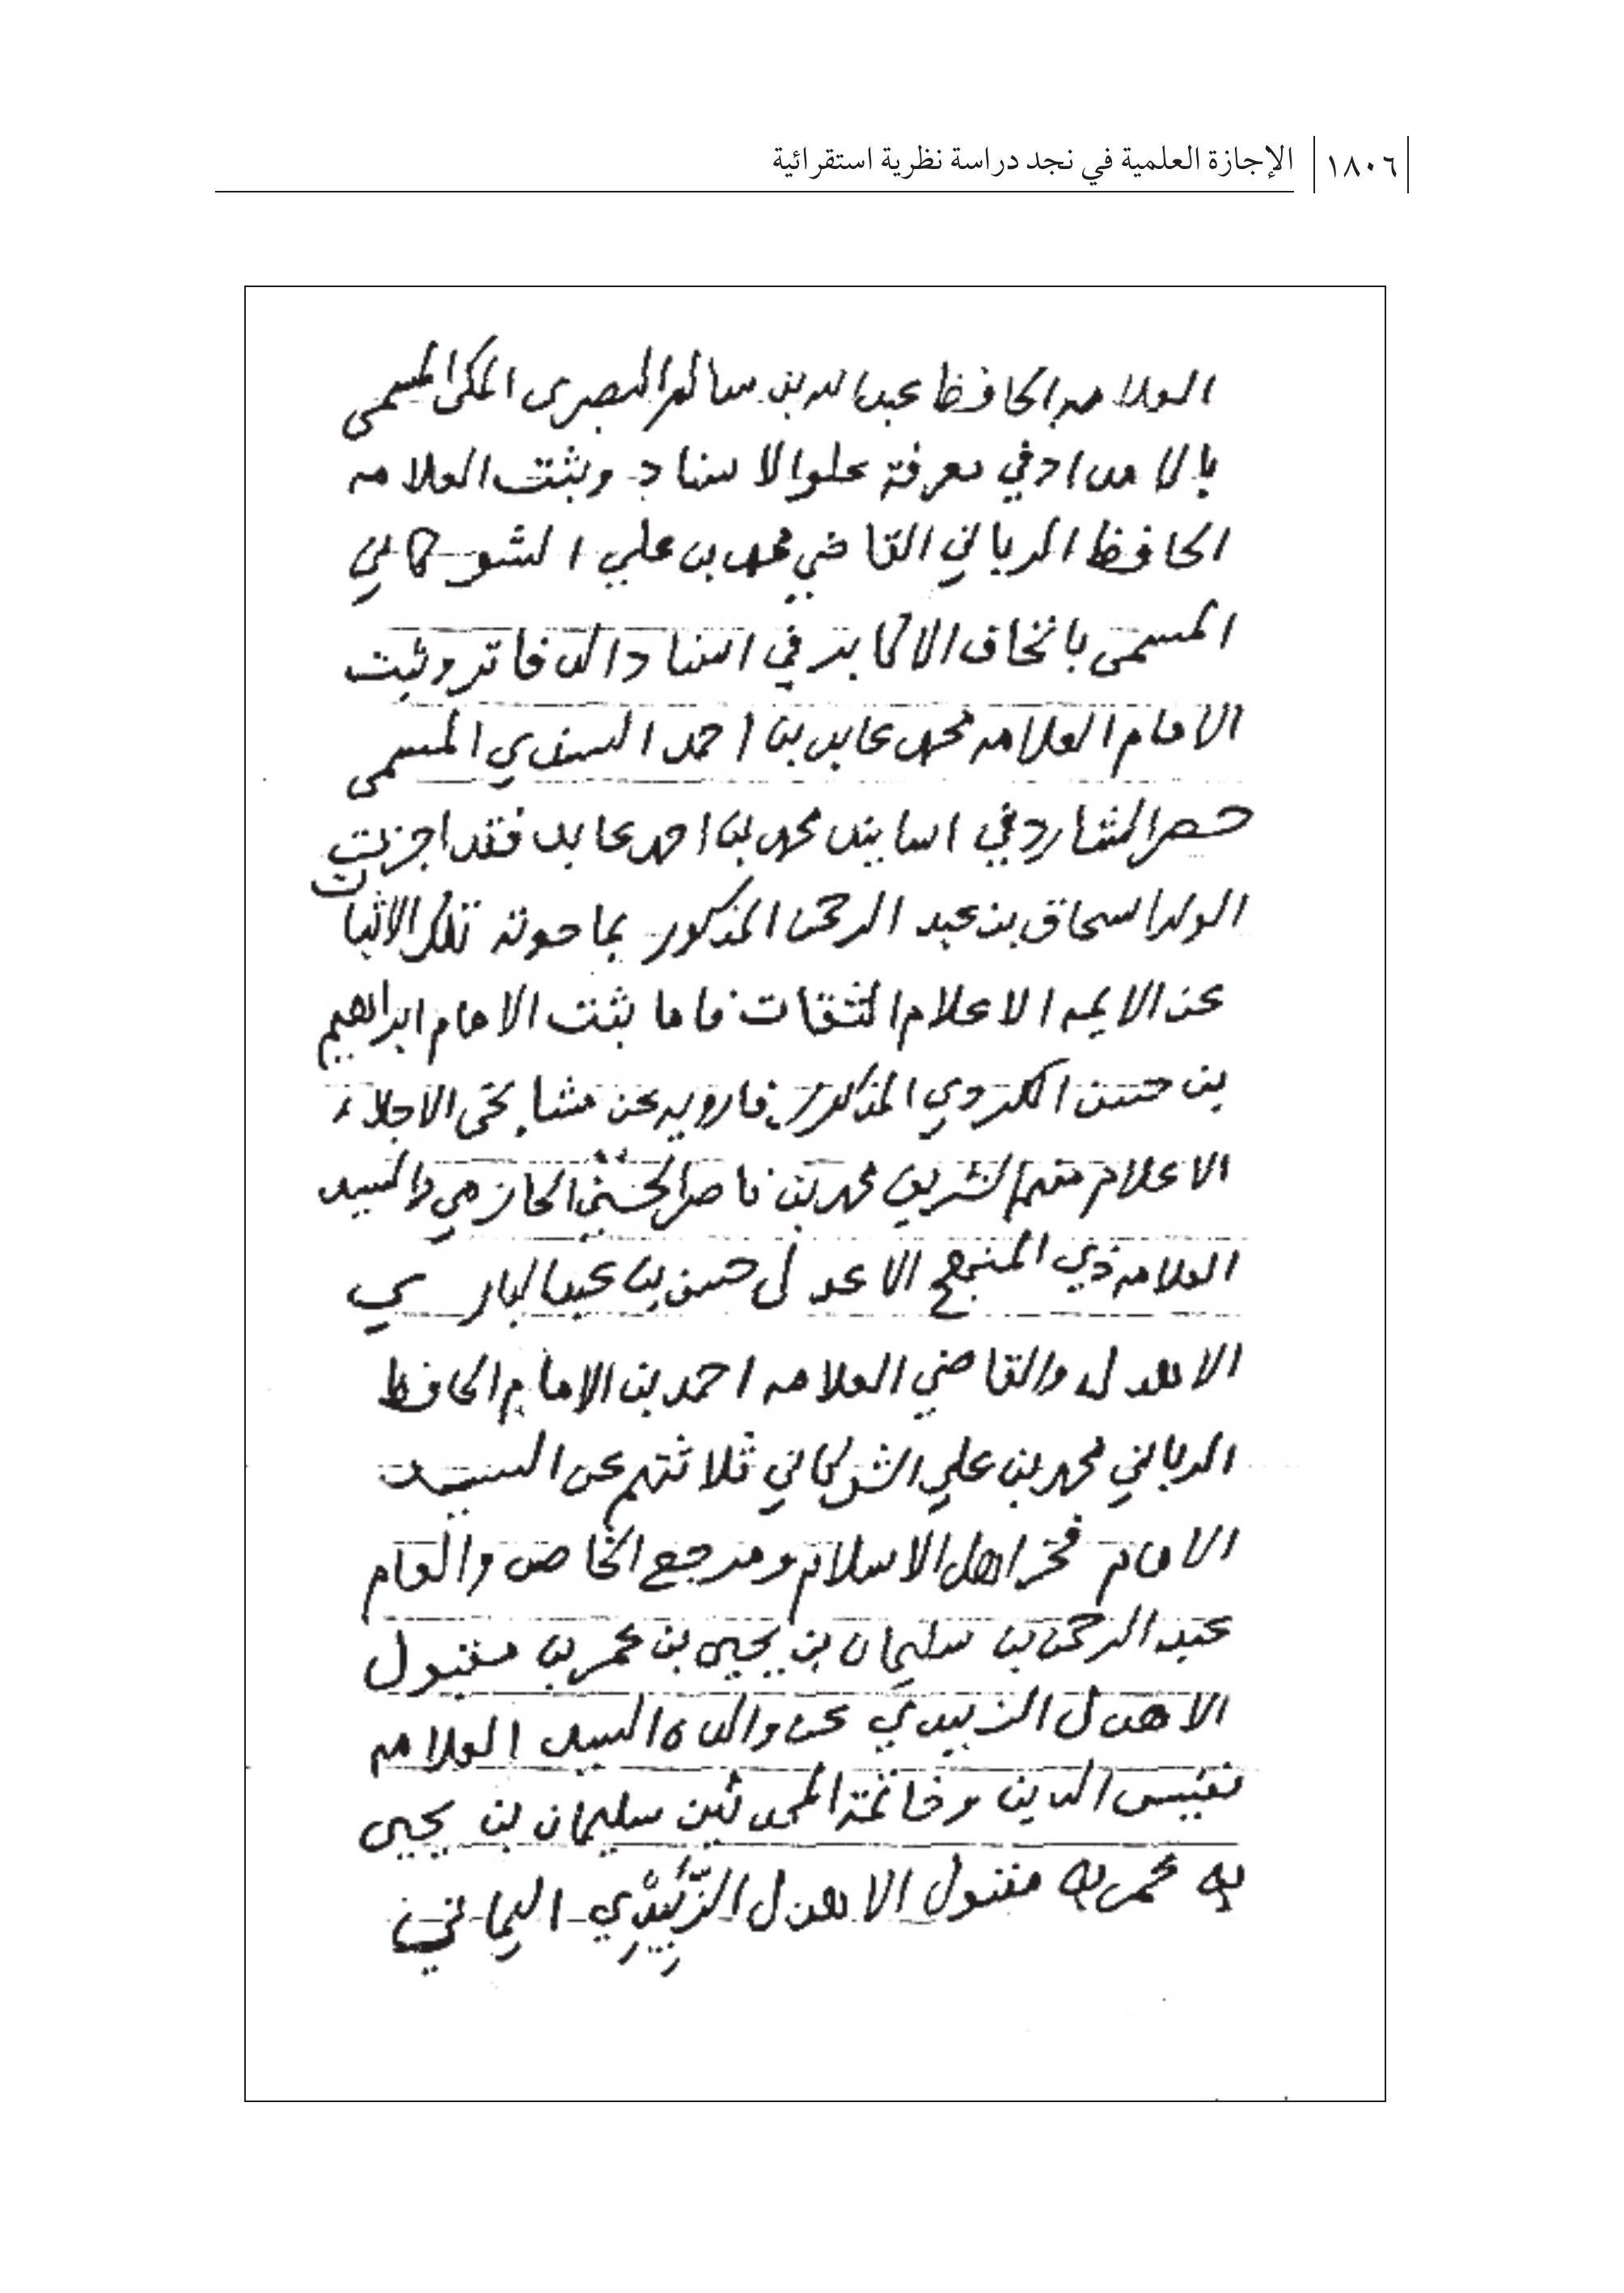 ١٨٠٦ الإجازة العلمية في نجد دراسة نظرية استقرائية
العلامه الحافظ عبدالله بن سالم البصرى المكى المسمى
بالامداد في معرفة علو الاسناد وبثبت العلامه
الحافظ الرباني القاضي محمد بن علي الشوكاني
المسمى باتحاف الاكابر في اسناد الدفاتر وثبت
الامام العلامه محمد عابد بن احمد السندي المسمى
حصر الشارد في اسانيد محمد بن احمد عابد فقد اجزت
الولد اسحاق بن عبد الرحمن المذكور بما حوته تلك الاثبات
عن الايمه الاعلام الثقات فاما بثبت الامام ابراهيم
بن حسن الكردي المذكور فارويه عن مشايخى الاجلاء
الاعلام منهم الشريف محمد بن ناصر الحسني الحازمي والسيد
العلامه ذي المنهج الاعدل حسن بن عبدالباري
الاهدل والقاضي العلامه احمد بن الامام الحافظ
الرباني محمد بن علي الشوكاني ثلاثتهم عن السيد
الامام فخر اهل الاسلام ومرجع الخاص والعام
عبد الرحمن بن سليمان بن يحيى بن عمر بن مقبول
الاهدل الزبيدي عن والده السيد العلامه
نفيس الدين وخاتمة المحدثين سليمان بن يحيى
بن عمر بن مقبول الاهدل الزَّبِيْدِي اليماني